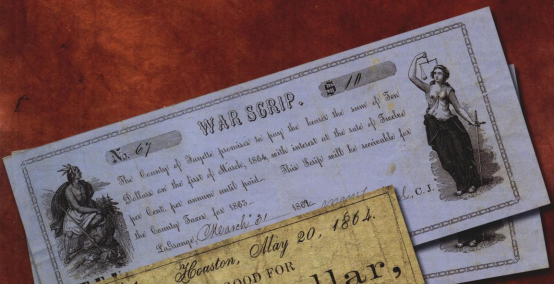 WAR SCRIP.
No. 67
$ 10
The County of Fayette promises to pay the bearer the sum of Ten
Dollars on the first of March, 1864, with interest at the rate of Twelve
per Cent. per annum until paid. This Scrip will be receivable for
the County Taxes for 1863.
LaGrange, March 31 186 C. J.
Houston, May 20, 1864.
GOOD FOR
llar,